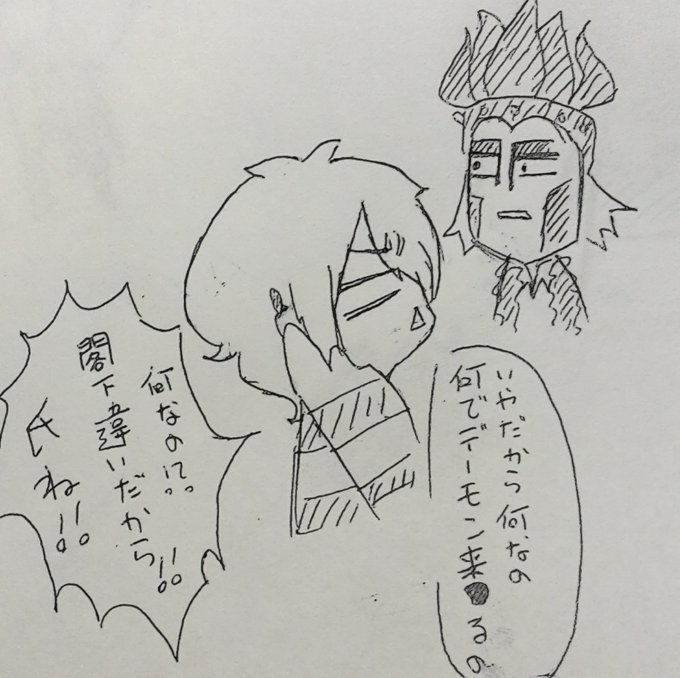 いやだから何なの
何でデーモン来るの
何なの!?
閣下違いだから!!
氏ね!!